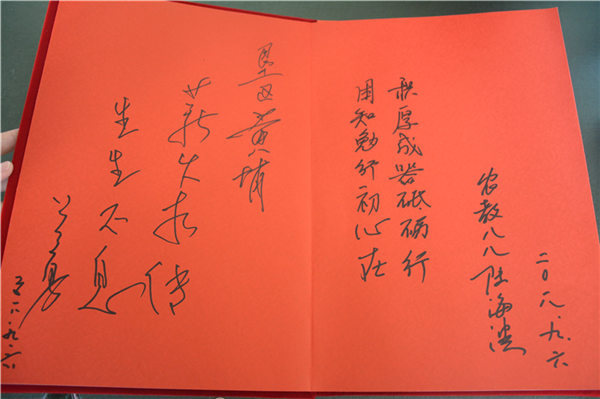 黄埔
薪火相传
生生不息
一八.九.六
困知勉行初心在
积厚成器砥砺行
农教八八 陆海
二〇一八.九.六